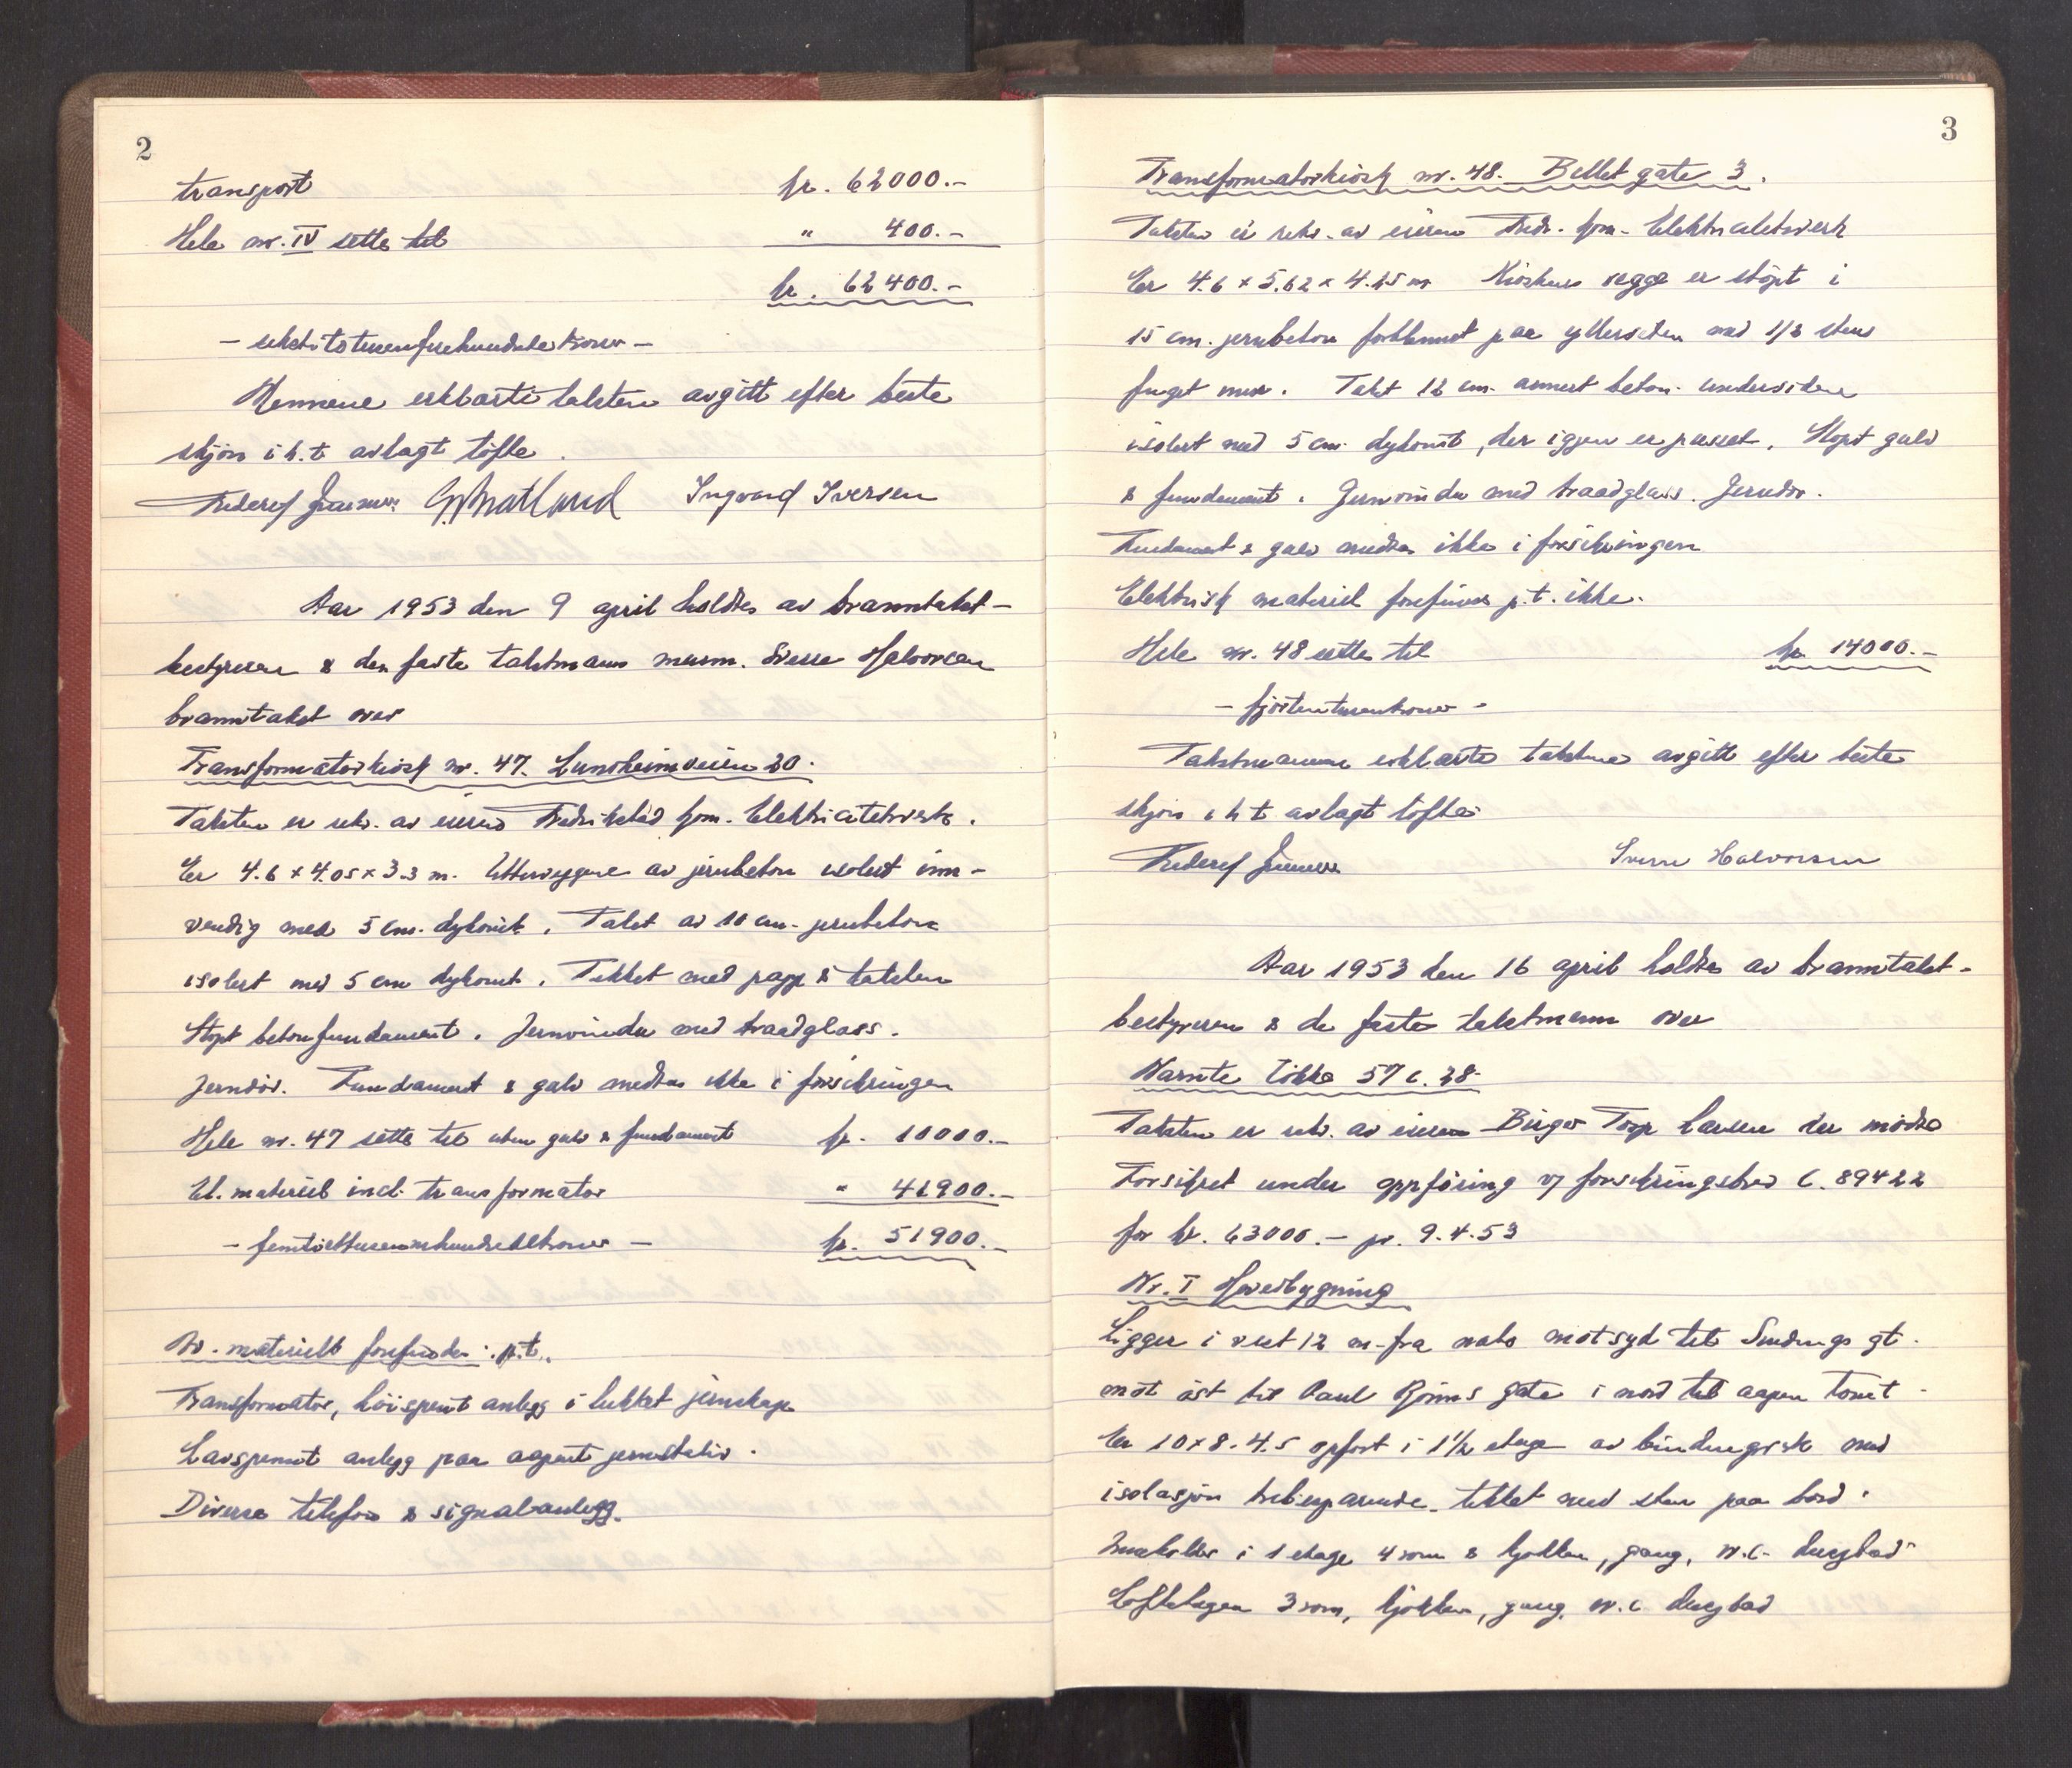 2
transport kr. 62000.-
Hele nr. IV settes til " 400.-
kr. 62400.-
- sekstitotusenfirehundrede kroner -
Mennene erklærte taksten avgitt efter beste
skjøn i h.t avlagt løfte.
Ingvard Iversen
Aar 1953 den 9 april holdtes av branntakst-
bestyreren & den faste takstmann murm. Sverre Halvorsen
branntakst over
Transformatorkiosk nr. 47. Lunsheimveien 20.
Taksten er rekv. av eieren Fredrikstad kom. Elektricitetsverk.
Er 4.6 x 4.05 x 3.3 m. Utterveggene av jernbeton isolert inn-
vendig med 5 cm. dykonit. Taket av 10 cm. jernbeton
isolert med 5 cm dykonit. Tekket med papp & taksten
Støpt betonfundament. Jernvindu med traadglass.
Jerndør. Fundament & gulv medtas ikke i forsikringen
Hele nr. 47 settes til uten gulv & fundament kr. 10000.-
El. materiell incl. transformator " 41900.-
- femtiettusennihundrede kroner - kr. 51900.-
Av materiell forefindes p.t.
Transformator, høispent anlegg i lukket jernskap
Lavspennt anlegg paa aapent jernstativ.
Diverse telefon & signalanlegg.
3
Transformatorkiosk nr. 48. Bellet gate 3.
Taksten er rekv. av eieren Fredr. kom. Elektricitetsverk
Er 4.6 x 5.62 x 4.25 m Kioskens vegge er støpt i
15 cm. jernbeton forblennet paa yttersiden med 1/2 stens
fuget mur. Takt 12 cm. armert beton. undersiden
isolert med 5 cm. dykonit, der igjen er pusset. Støpt gulv
& fundament. Jernvindu med traadglass. Jerndør.
Fundament & gulv medtas ikke i forsikringen
Elektrisk materiel forefinnes p.t. ikke.
Hele nr. 48 settes til kr 14000.-
- fjortentusenkroner -
Takstmannen erklærte taksten avgitt efter beste
skjøn i h t avlagt løfte
Sverre Halvorsen
Aar 1953 den 16 april holdtes av branntakst-
bestyreren & de faste takstmenn over
Narnte løkke 57 c. 28.
Taksten er rekv. av eieren Birger Torp Larsen der møtte
Forsikret under oppføring v/ forsikringsbrev C. 89422
for kr. 63000.- pr. 9.4.53
Nr. I Hovedbygning
Ligger i vest 12 m. fra nabo mot syd til Sindings gt.
mot øst til Paul Bjørns gate i nord til aapen tomt.
Er 10 x 8. 4.5 opført i 1 1/2 etage av bindingsverk med
isolasjon trebesparende. tekket med sten paa bord.
Inneholder i 1 etage 4 rom & kjøkken, gang, W.C. dusjbad
Loftetagen 3 rom, kjøkken, gang, W.C dusjbad